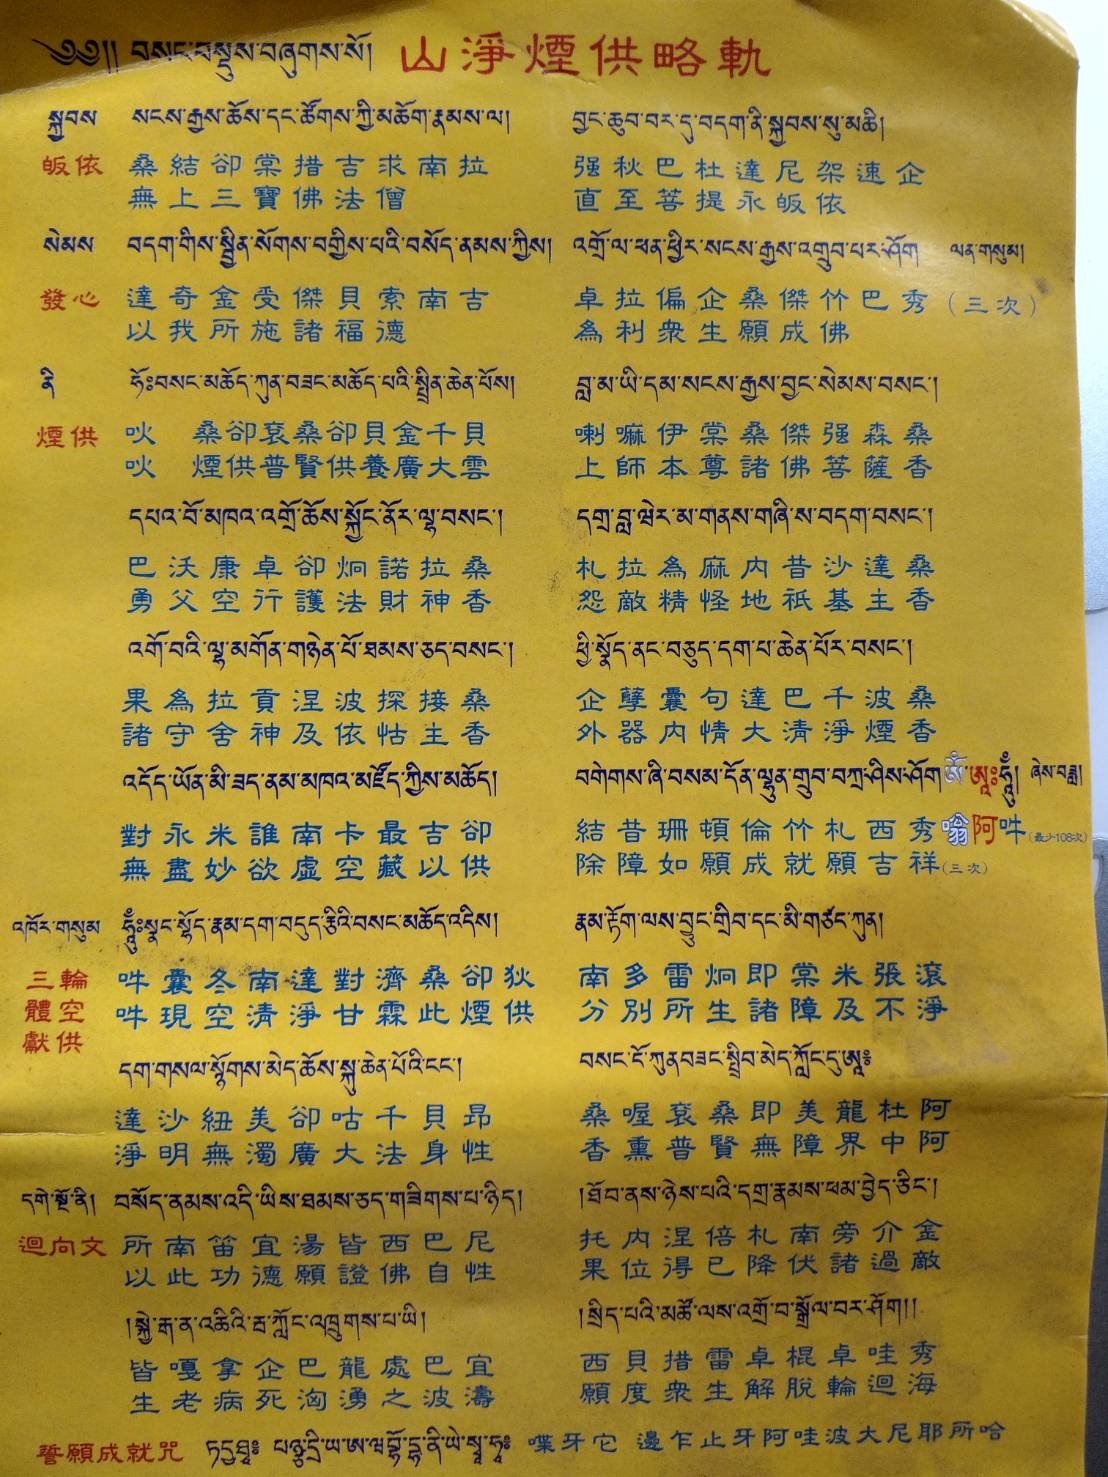 ༄༅།། བསང་བསྡུས་བཞུགས་སོ། 山淨煙供略軌
སྐྱབས སངས་རྒྱས་ཆོས་དང་ཚོགས་ཀྱི་མཆོག་རྣམས་ལ། བྱང་ཆུབ་བར་དུ་བདག་ནི་སྐྱབས་སུ་མཆི།
皈依 桑結卻棠措吉求南拉 强秋巴杜達尼架速企
無上三寶佛法僧 直至菩提永皈依
སེམས བདག་གིས་སྦྱིན་སོགས་བགྱིས་པའི་བསོད་ནམས་ཀྱིས། འགྲོ་ལ་ཕན་ཕྱིར་སངས་རྒྱས་འགྲུབ་པར་ཤོག ལན་གསུམ།
發心 達奇金受傑貝索南吉 卓拉偏企桑傑竹巴秀(三次)
以我所施諸福德 為利衆生願成佛
ནི ཧོ༔བསང་མཆོད་ཀུན་བཟང་མཆོད་པའི་སྤྲིན་ཆེན་པོས། བླ་མ་ཡི་དམ་སངས་རྒྱས་བྱང་སེམས་བསང་།
煙供 吙 桑卻袞桑卻貝金千貝 喇嘛伊棠桑傑强森桑
吙 煙供普賢供養廣大雲 上師本尊諸佛菩薩香
དཔའ་བོ་མཁའ་འགྲོ་ཆོས་སྐྱོང་ནོར་ལྷ་བསང་། དགྲ་བླ་ཝེར་མ་གནས་གཞི་ས་བདག་བསང་།
巴沃康卓卻炯諾拉桑 札拉為麻內昔沙達桑
勇父空行護法財神香 怨敵精怪地祇基主香
འགོ་བའི་ལྷ་མགོན་གཉེན་པོ་ཐམས་ཅད་བསང་། ཕྱི་སྣོད་ནང་བཅུད་དག་པ་ཆེན་པོར་བསང་།
果為拉貢涅波探接桑 企孽囊句達巴千波桑
諸守舍神及依怙主香 外器內情大清淨煙香
འདོད་ཡོན་མི་ཟད་ནམ་མཁའ་མཛོད་ཀྱིས་མཆོད། བགེགས་ཞི་བསམ་དོན་ལྷུན་གྲུབ་བཀྲ་ཤིས་ཤོག ཨོཾ་ཨཱཿཧཱུྂ། ཞེས་བཟླ།
對永米誰南卡最吉卻 結昔珊頓倫竹札西秀 嗡阿吽(最少108次)
無盡妙欲虛空藏以供 除障如願成就願吉祥(三次)
འཁོར་གསུམ ཧཱུྂ༔སྣང་སྟོང་རྣམ་དག་བདུད་རྩིའི་བསང་མཆོད་འདིས། རྣམ་རྟོག་ལས་བྱུང་གྲིབ་དང་མི་གཙང་ཀུན།
三輪 吽囊冬南達對濟桑卻狄 南多雷炯即棠米張滾
體空 吽現空清淨甘霖此煙供 分別所生諸障及不淨
獻供
དག་གསལ་རྙོགས་མེད་ཆོས་སྐུ་ཆེན་པོའི་ངང་། བསང་ངོ་ཀུནབཟང་སྒྲིབ་མེད་ཀློང་དུ་ཨཱ༔
達沙紐美卻咕千貝昂 桑喔袞桑即美龍杜阿
淨明無濁廣大法身性 香熏普賢無障界中阿
དགེ་སྔོ་ནི། བསོད་ནམས་འདི་ཡིས་ཐམས་ཅད་གཟིགས་པ་ཉིད། །ཐོབ་ནས་ཉེས་པའི་དགྲ་རྣམས་ཕམ་བྱེད་ཅིང་།
迴向文 所南笛宜湯皆西巴尼 托內涅倍札南旁介金
以此功德願證佛自性 果位得已降伏諸過敵
།སྐྱེ་རྒ་ན་འཆིའི་རྦ་ཀློང་འཁྲུགས་པ་ཡི། །སྲིད་པའི་མཚོ་ལས་འགྲོ་བ་སྒྲོལ་བར་ཤོག།།
皆嘎拿企巴龍處巴宜 西貝措雷卓棍卓哇秀
生老病死洶湧之波濤 願度衆生解脫輪迴海
誓願成就咒 ཏདྱཐཱ༔ པཉྩནྡྲི་ཡ་ཨ་ཝ་བོ་དྷ་ནི་ཡེ་སྭཱ་ཧཱ༔ 喋牙它 邊乍止牙阿哇波大尼耶所哈